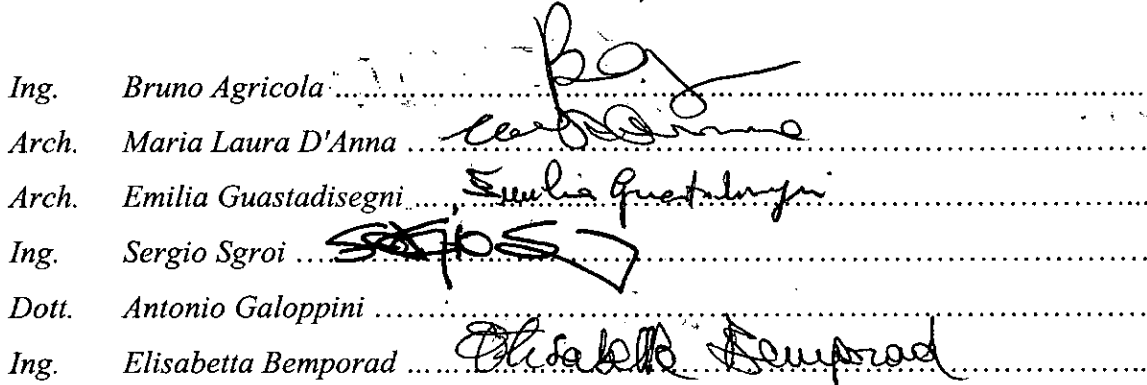 Ing. Bruno Agricola ........................................................
Arch. Maria Laura D'Anna ........................................................
Arch. Emilia Guastadisegni ........................................................ Emilia Guastadisegni
Ing. Sergio Sgroi ........................................................ Sergio S
Dott. Antonio Galoppini ........................................................
Ing. Elisabetta Bemporad ........................................................ Elisabetta Bemporad